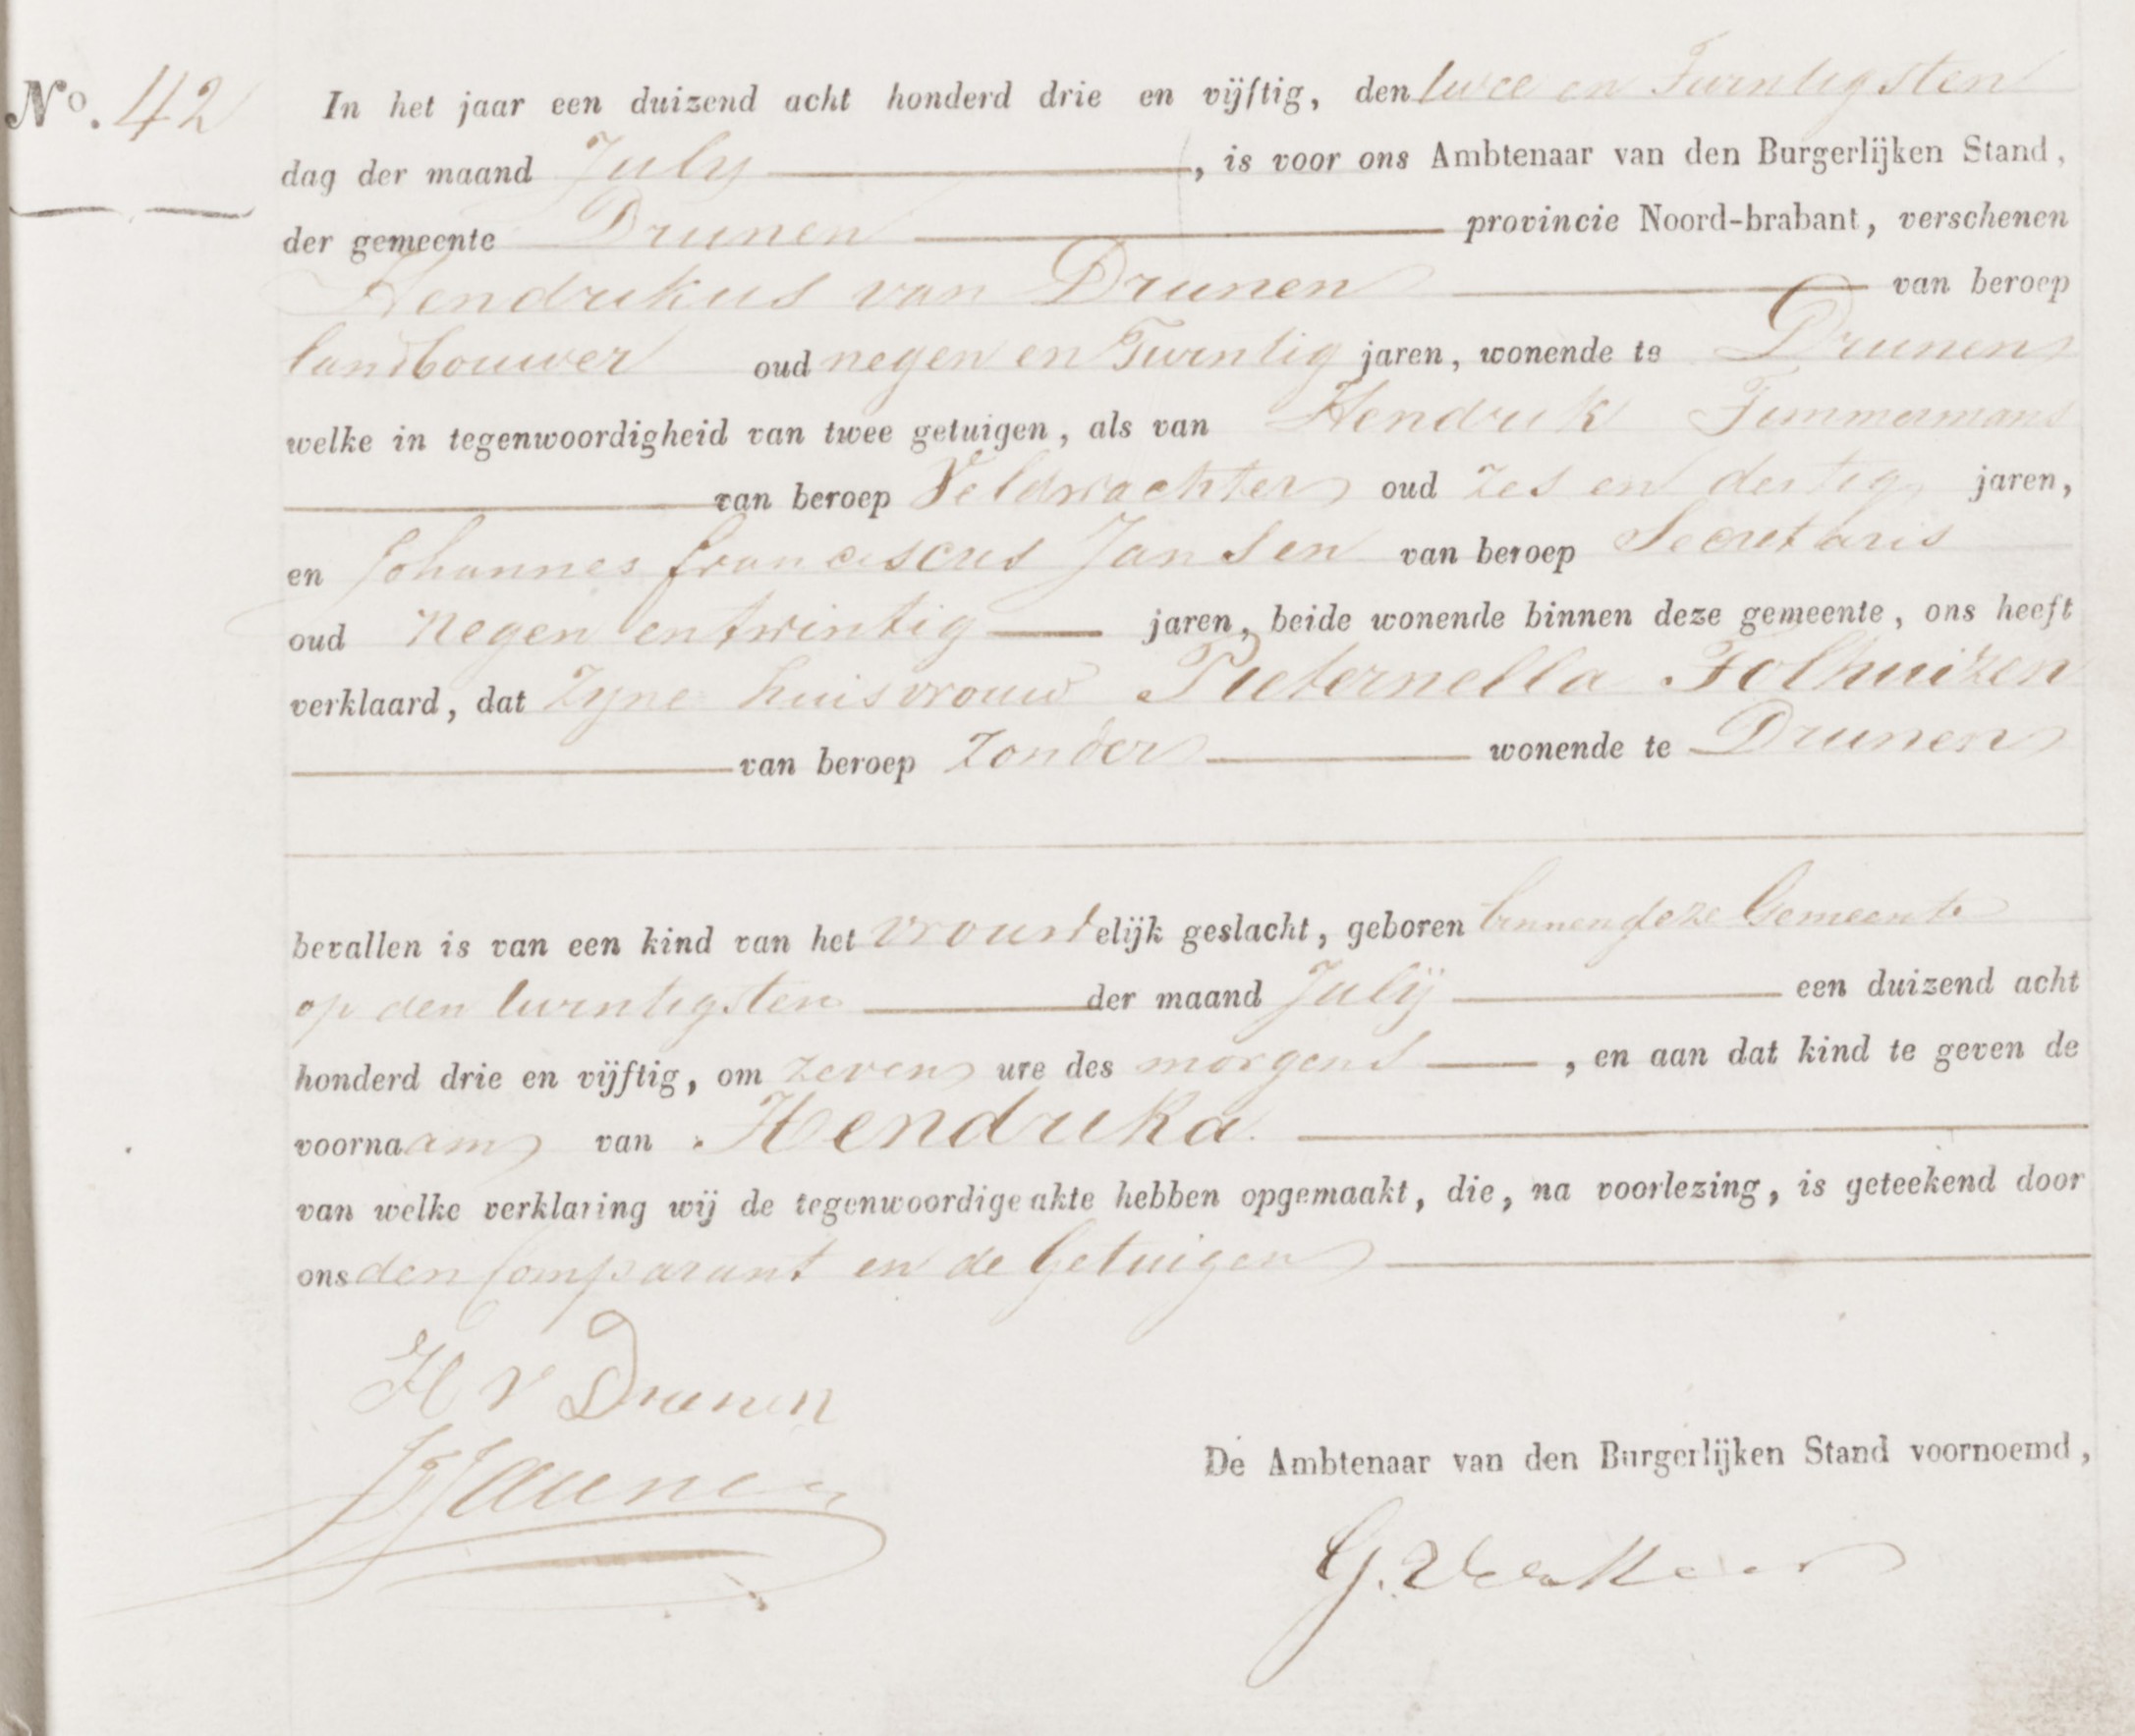 No. 42
In het jaar een duizend acht honderd drie en vijftig, den twee en Twintigsten
dag der maand July, is voor ons Ambtenaar van den Burgerlijken Stand,
der gemeente Drunen provincie Noord-brabant, verschenen
Hendrikus van Drunen van beroep
landbouwer oud negen en Twintig jaren, wonende te Drunen
welke in tegenwoordigheid van twee getuigen, als van Hendrik Timmermans
van beroep Veldwachter oud zes en dertig jaren,
en Johannes franciscus Jansen van beroep Secretaris
oud negen en twintig jaren, beide wonende binnen deze gemeente, ons heeft
verklaard, dat zyne huisvrouw Pieternella Folhuizen
van beroep zonder wonende te Drunen
bevallen is van een kind van het vrouwelijk geslacht, geboren binnen deze Gemeente
op den twintigsten der maand July een duizend acht
honderd drie en vijftig, om zeven ure des morgens, en aan dat kind te geven de
voornaam van Hendrika
van welke verklaring wij de tegenwoordige akte hebben opgemaakt, die, na voorlezing, is geteekend door
ons den Comparant en de Getuigen
H v Drunen
De Ambtenaar van den Burgerlijken Stand voornoemd,
G.